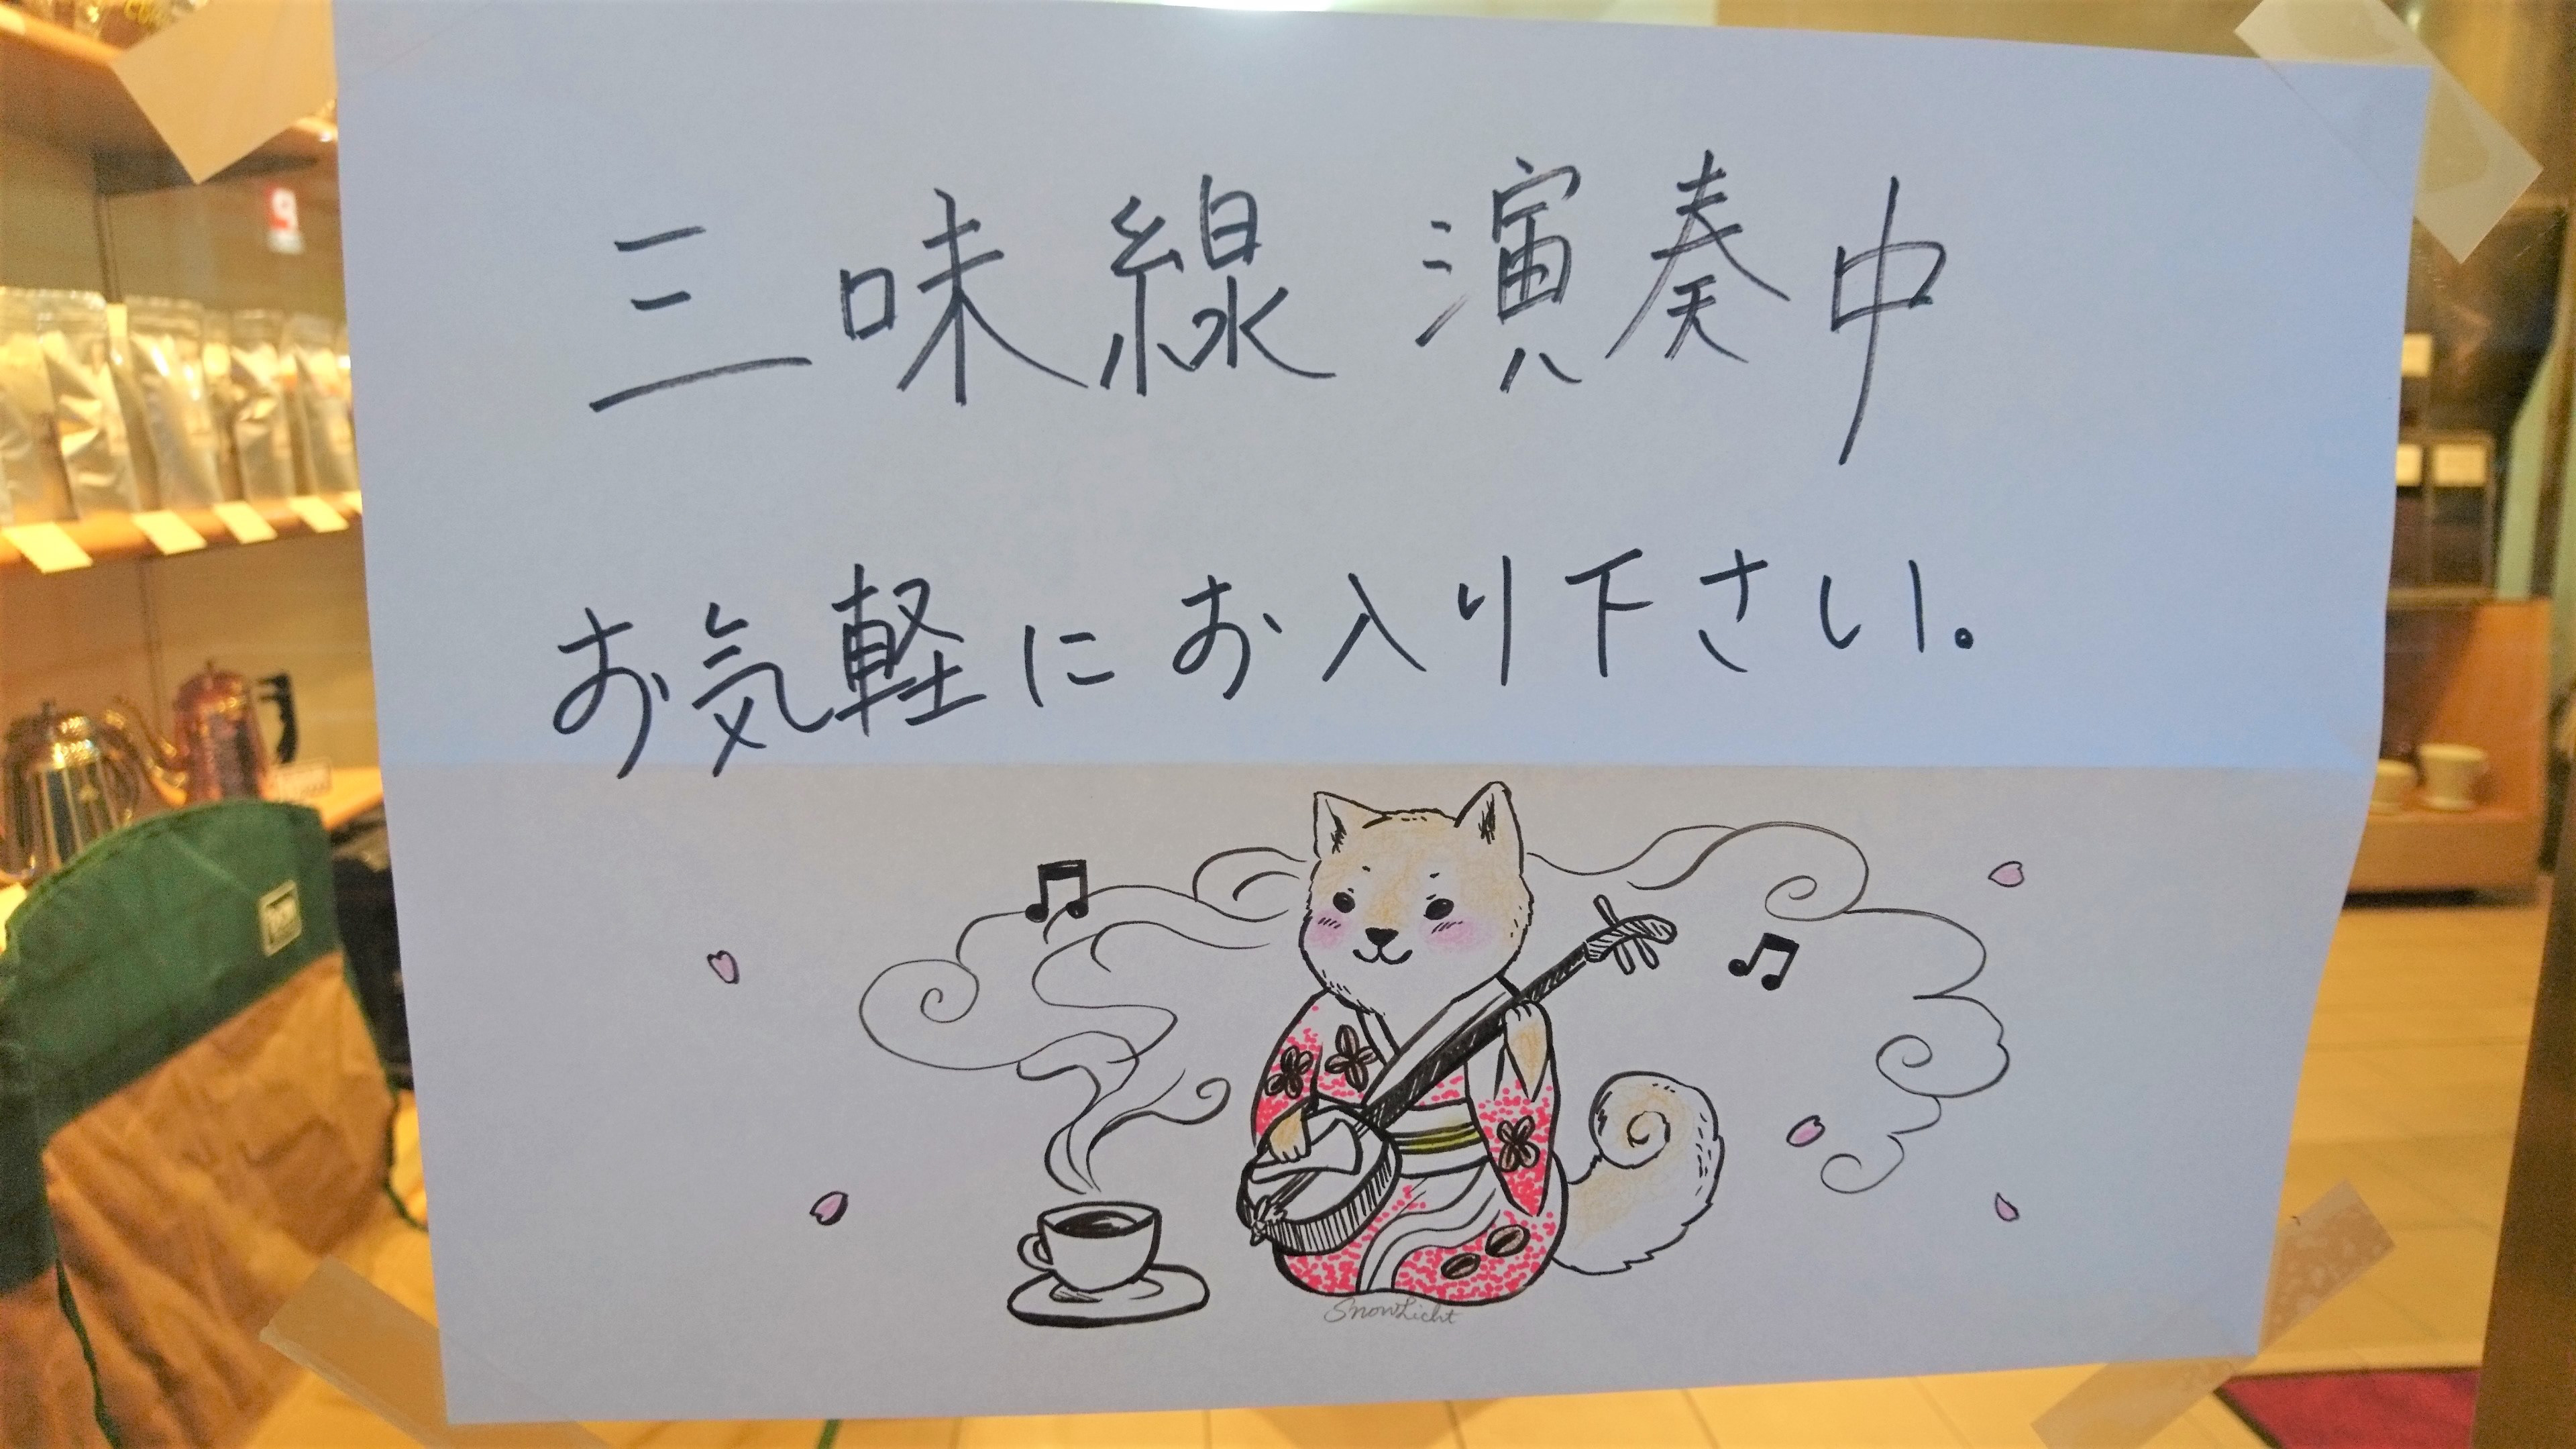 三味線 演奏中
お気軽にお入り下さい。
SnowLicht